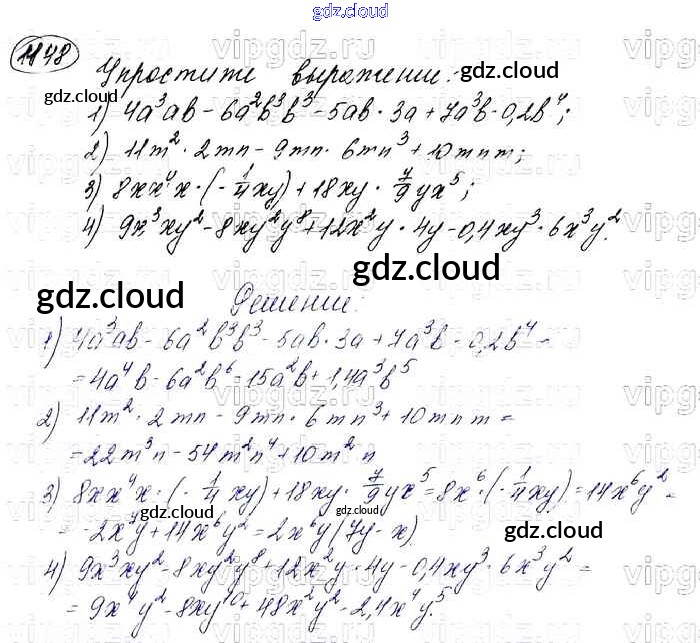 gdz.cloud
1148
Упростите выражении:
1) 4a³ab - 6a²b³b³ - 5ab · 3a + 7a³b · 0,2b⁴;
2) 11m² · 2mn - 9mn · 6mn³ + 10mnm;
3) 8xx⁴x · (-1/4xy) + 18xy · 7/9yx⁵;
4) 9x³xy² - 8xy²y⁸ + 12x²y · 4y - 0,4xy³ · 6x³y².
Решение:
1) 4a³ab - 6a²b³b³ - 5ab · 3a + 7a³b · 0,2b⁴ =
= 4a⁴b - 6a²b⁶ - 15a²b + 1,4a³b⁵
2) 11m² · 2mn - 9mn · 6mn³ + 10mnm =
= 22m³n - 54m²n⁴ + 10m²n
3) 8xx⁴x · (-1/4xy) + 18xy · 7/9yx⁵ = 8x⁶ · (-1/4xy) = 14x⁶y² =
= -2x⁷y + 14x⁶y² = 2x⁶y(7y - x)
4) 9x³xy² - 8xy²y⁸ + 12x²y · 4y - 0,4xy³ · 6x³y² =
= 9x⁴y² - 8xy¹⁰ + 48x²y² - 2,4x⁴y⁵.